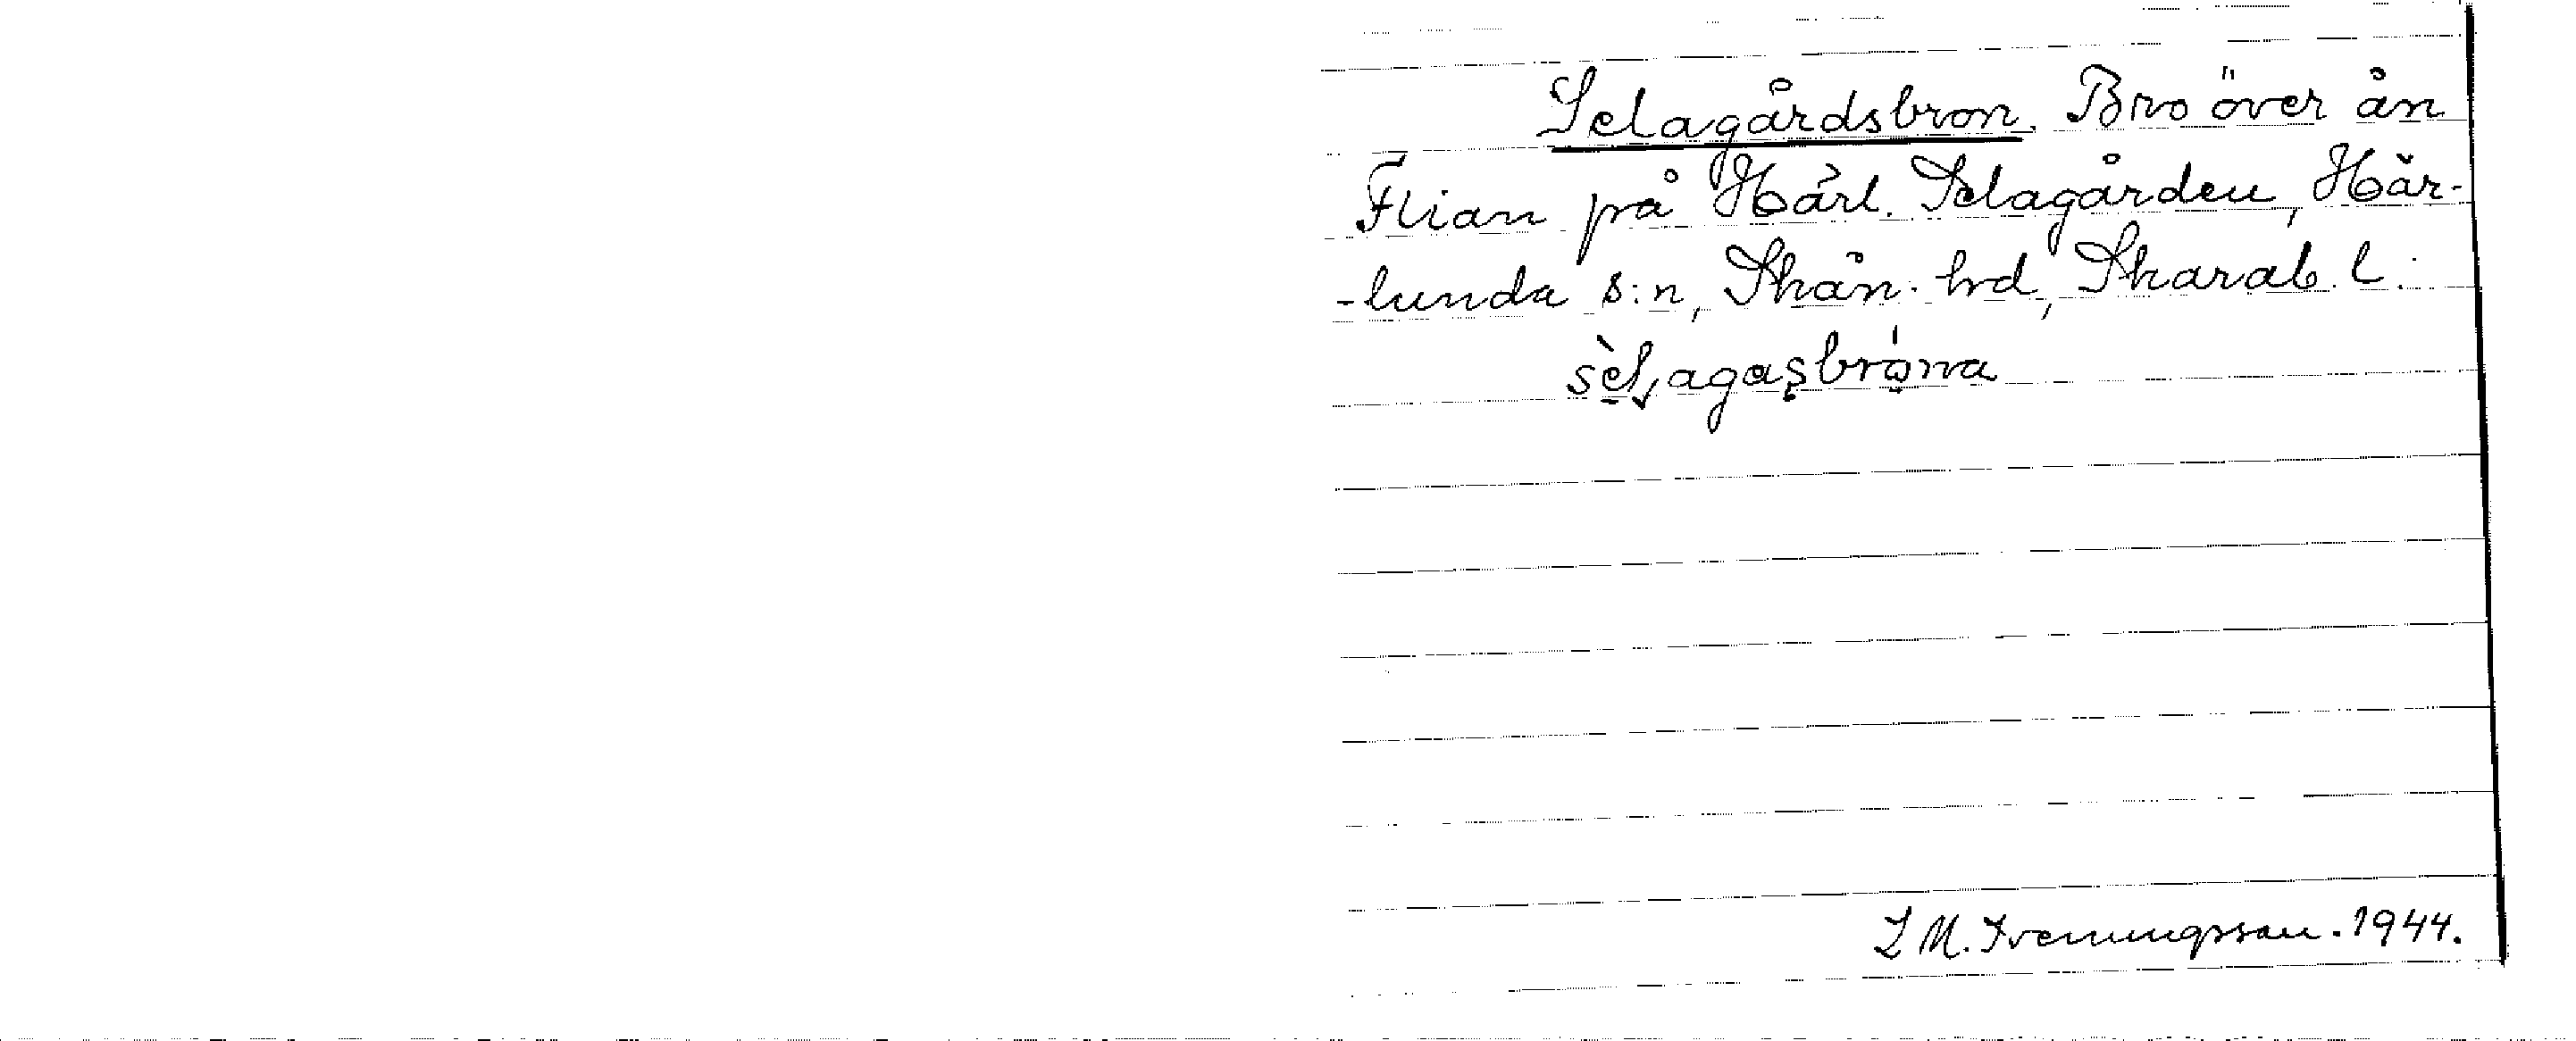 Selagårdsbron. Bro över ån
Flian på Härl. Selagården, Här-
-lunda s:n, Skån. hrd, Skarab. l.
L M. Svenungsson. 1944.